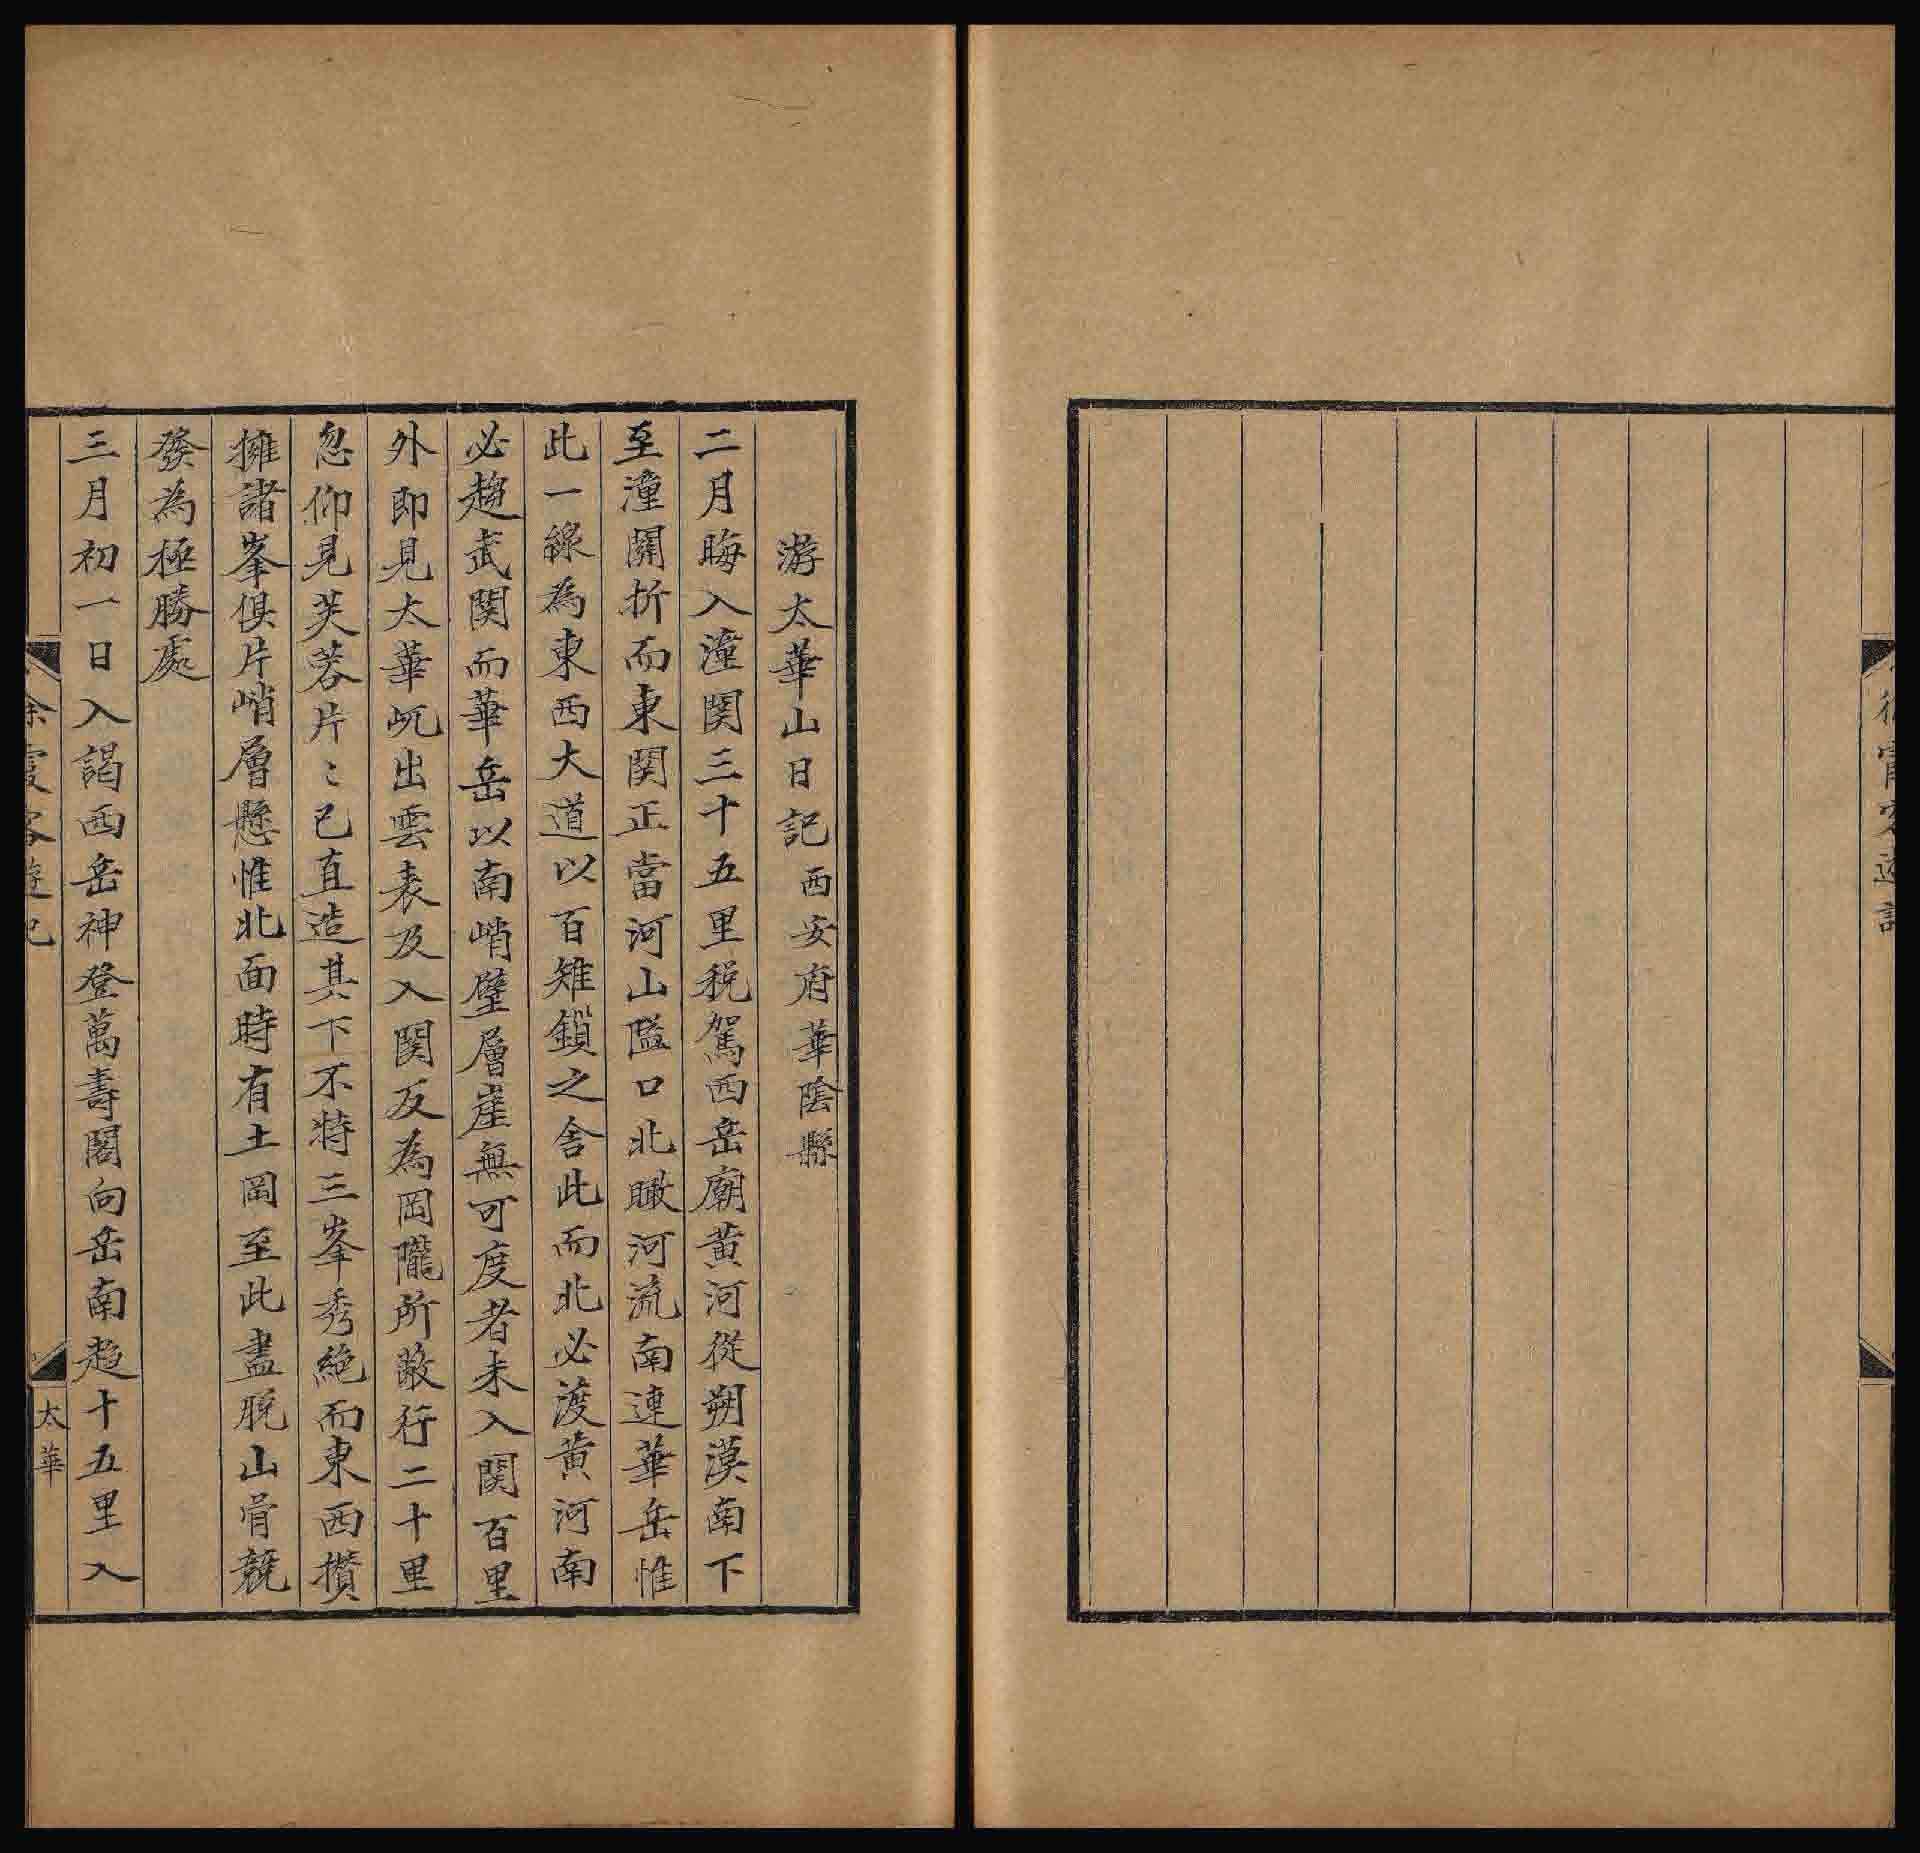 徐霞客遊記
游太華山日記西安府華陰縣
二月晦入潼関三十五里税駕西岳廟黄河從朔漠南下
至潼關折而東関正當河山隘口北瞰河流南連華岳惟
此一線為東西大道以百雉鎖之舍此而北必渡黄河南
必趨武関而華岳以南峭壁層崖無可度者未入関百里
外即見太華屼出雲表及入関反為岡隴所蔽行二十里
忽仰見芙蓉片〻已直造其下不特三峯秀絶而東西攅
擁諸峯俱片峭層懸惟北面時有土岡至此盡脱山骨競
發為極勝處
三月初一日入謁西岳神登萬壽閣向岳南趍十五里入
徐霞客遊記
太華